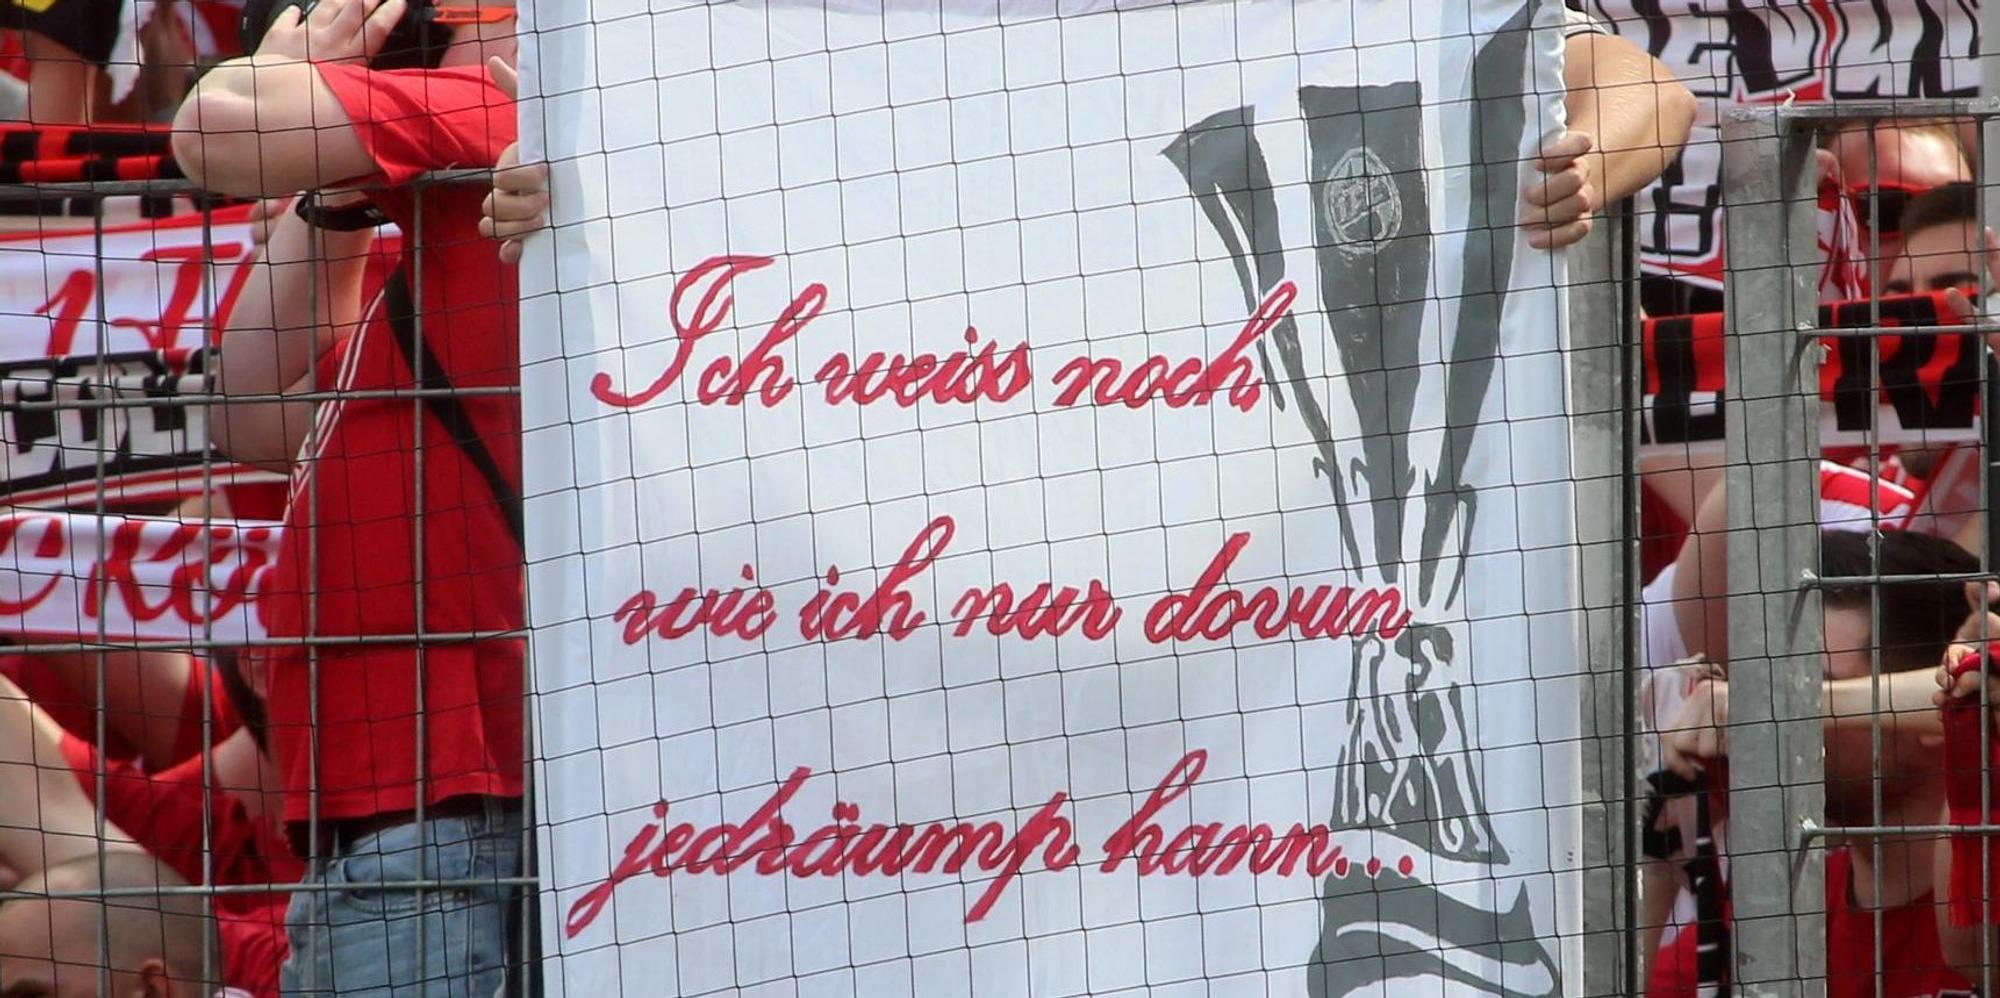 Ich weiss noch,
wie ich nur dovun
jedräump hann...